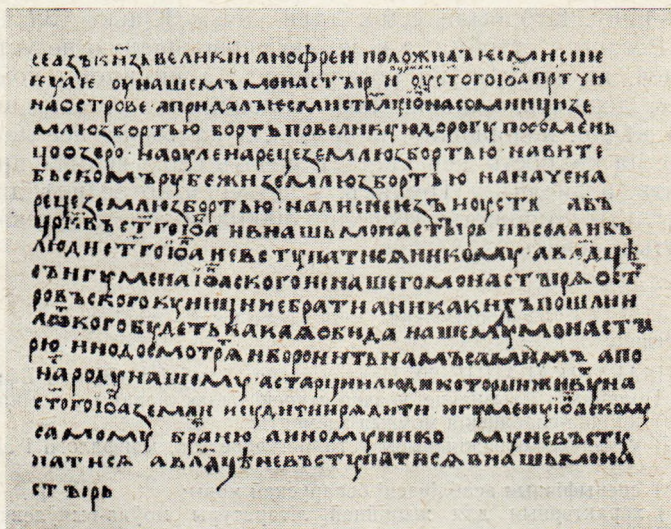 се азъ кнѧзь великіи анофреи положилъ есми сіие
н у нашемъ монастыр и оу стого іѡна прту и
на острове а придалъ есми на соминици зе
млю з бортью бортъ по великую дорогу по сомень
цо озеро на оуле на реце землю з бортью на вите
бьскомъ рубежи землю з бортью на нача на
реце землю з бортью на лисне езъ и оусть авъ
црквъ стго іѡа и въ нашь монастырь и въ села и въ
люди стго іѡа не въступатисѧ никому а влдцѣ
съ игумена іѡаского не нашего монастырѧ ост
ровъского куници не брати а ни какихъ пошлин
л кого будеть какаѧ обида нашему монасты
рю ино досмотрѧ и боронить намъ самимъ а по
на роду нашему а старци и люди которыи живут на
стого іѡа земли и судити и рѧдити игумену іѡаскому
самому братею а иному нико му не въсту
патисѧ а влдцѣ не въступатисѧ в нашь мона
стырь